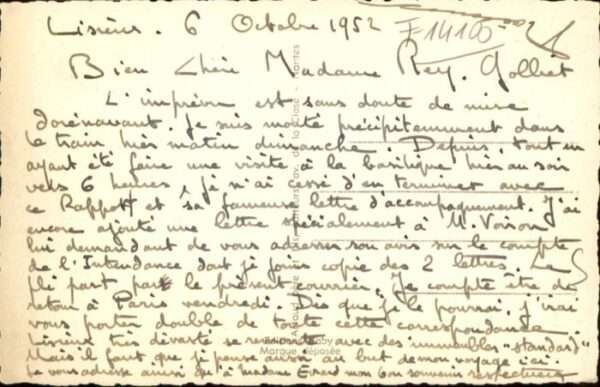 Lisieux. 6 Octobre 1952
F14100
Bien Chère Madame Rey. Golliet
L'imprévu est sans doute de mise
dorénavant. Je suis monté précipitemment dans
le train, très matin dimanche. Depuis, tout en
ayant été faire une visite à la basilique hier au soir
vers 6 heures, je n'ai cessé d'en terminer avec
ce Rapport et sa fameuse lettre d'accompagnement. J'ai
encore ajouté une lettre spécialement à M. Voison
lui demandant de vous adresser son avis sur le compte
de l'Intendance dont je joins copie des 2 lettres. Le
pli part par le présent courrier. Je compte être de
retour à Paris vendredi. Dès que je le pourrai, j'irai
vous porter double de toute cette correspondance.
Lisieux très dévasté se reconstruit avec des immeubles "standard"
Mais il faut que je pense aussi au but de mon voyage ici.
Je vous adresse ainsi qu'à madame Erard mon bon souvenir respectueux
Marque déposée